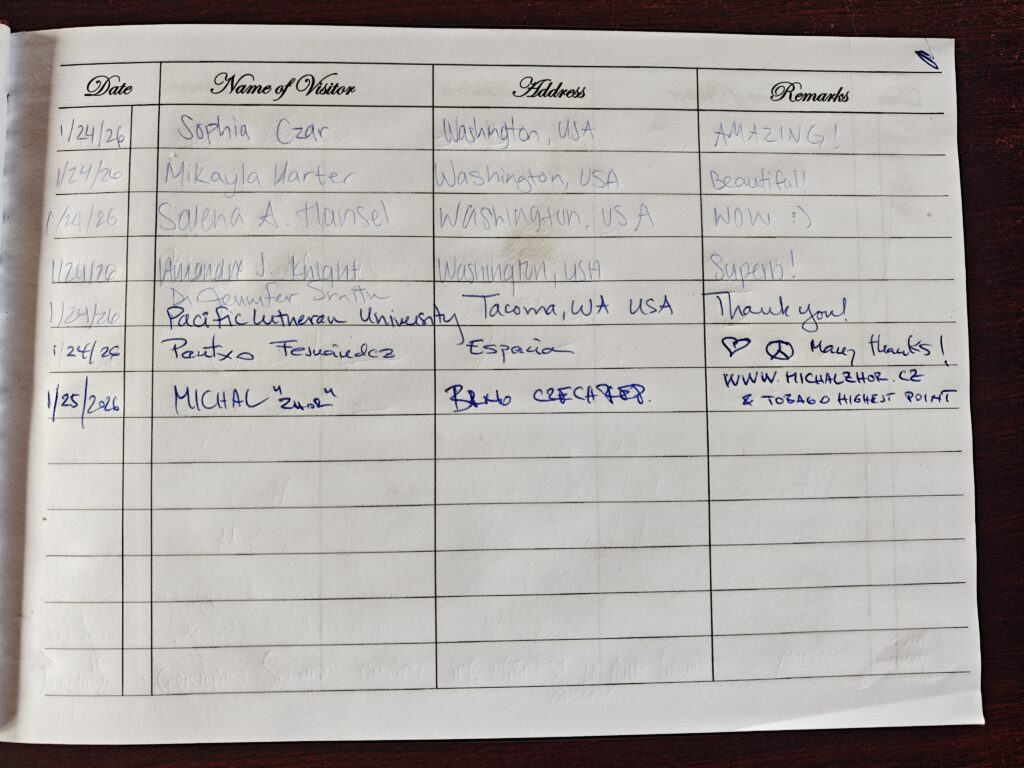 Date Name of Visitor Address Remarks
1/24/26 Sophia Czar Washington, USA AMAZING!
1/24/26 Mikayla Harter Washington, USA Beautiful!
1/24/26 Salena A. Hansel Washington, USA WOW :)
1/24/26 J. Knight Washington, USA Superb!
Dr Jennifer Smith
1/24/26 Pacific Lutheran University Tacoma, WA USA Thank you!
1/24/26 Pantxo Fernández España Many thanks!
WWW.MICHALZHOR.CZ
1/25/2026 MICHAL "ZHOR" BRNO & TOBAGO HIGHEST POINT